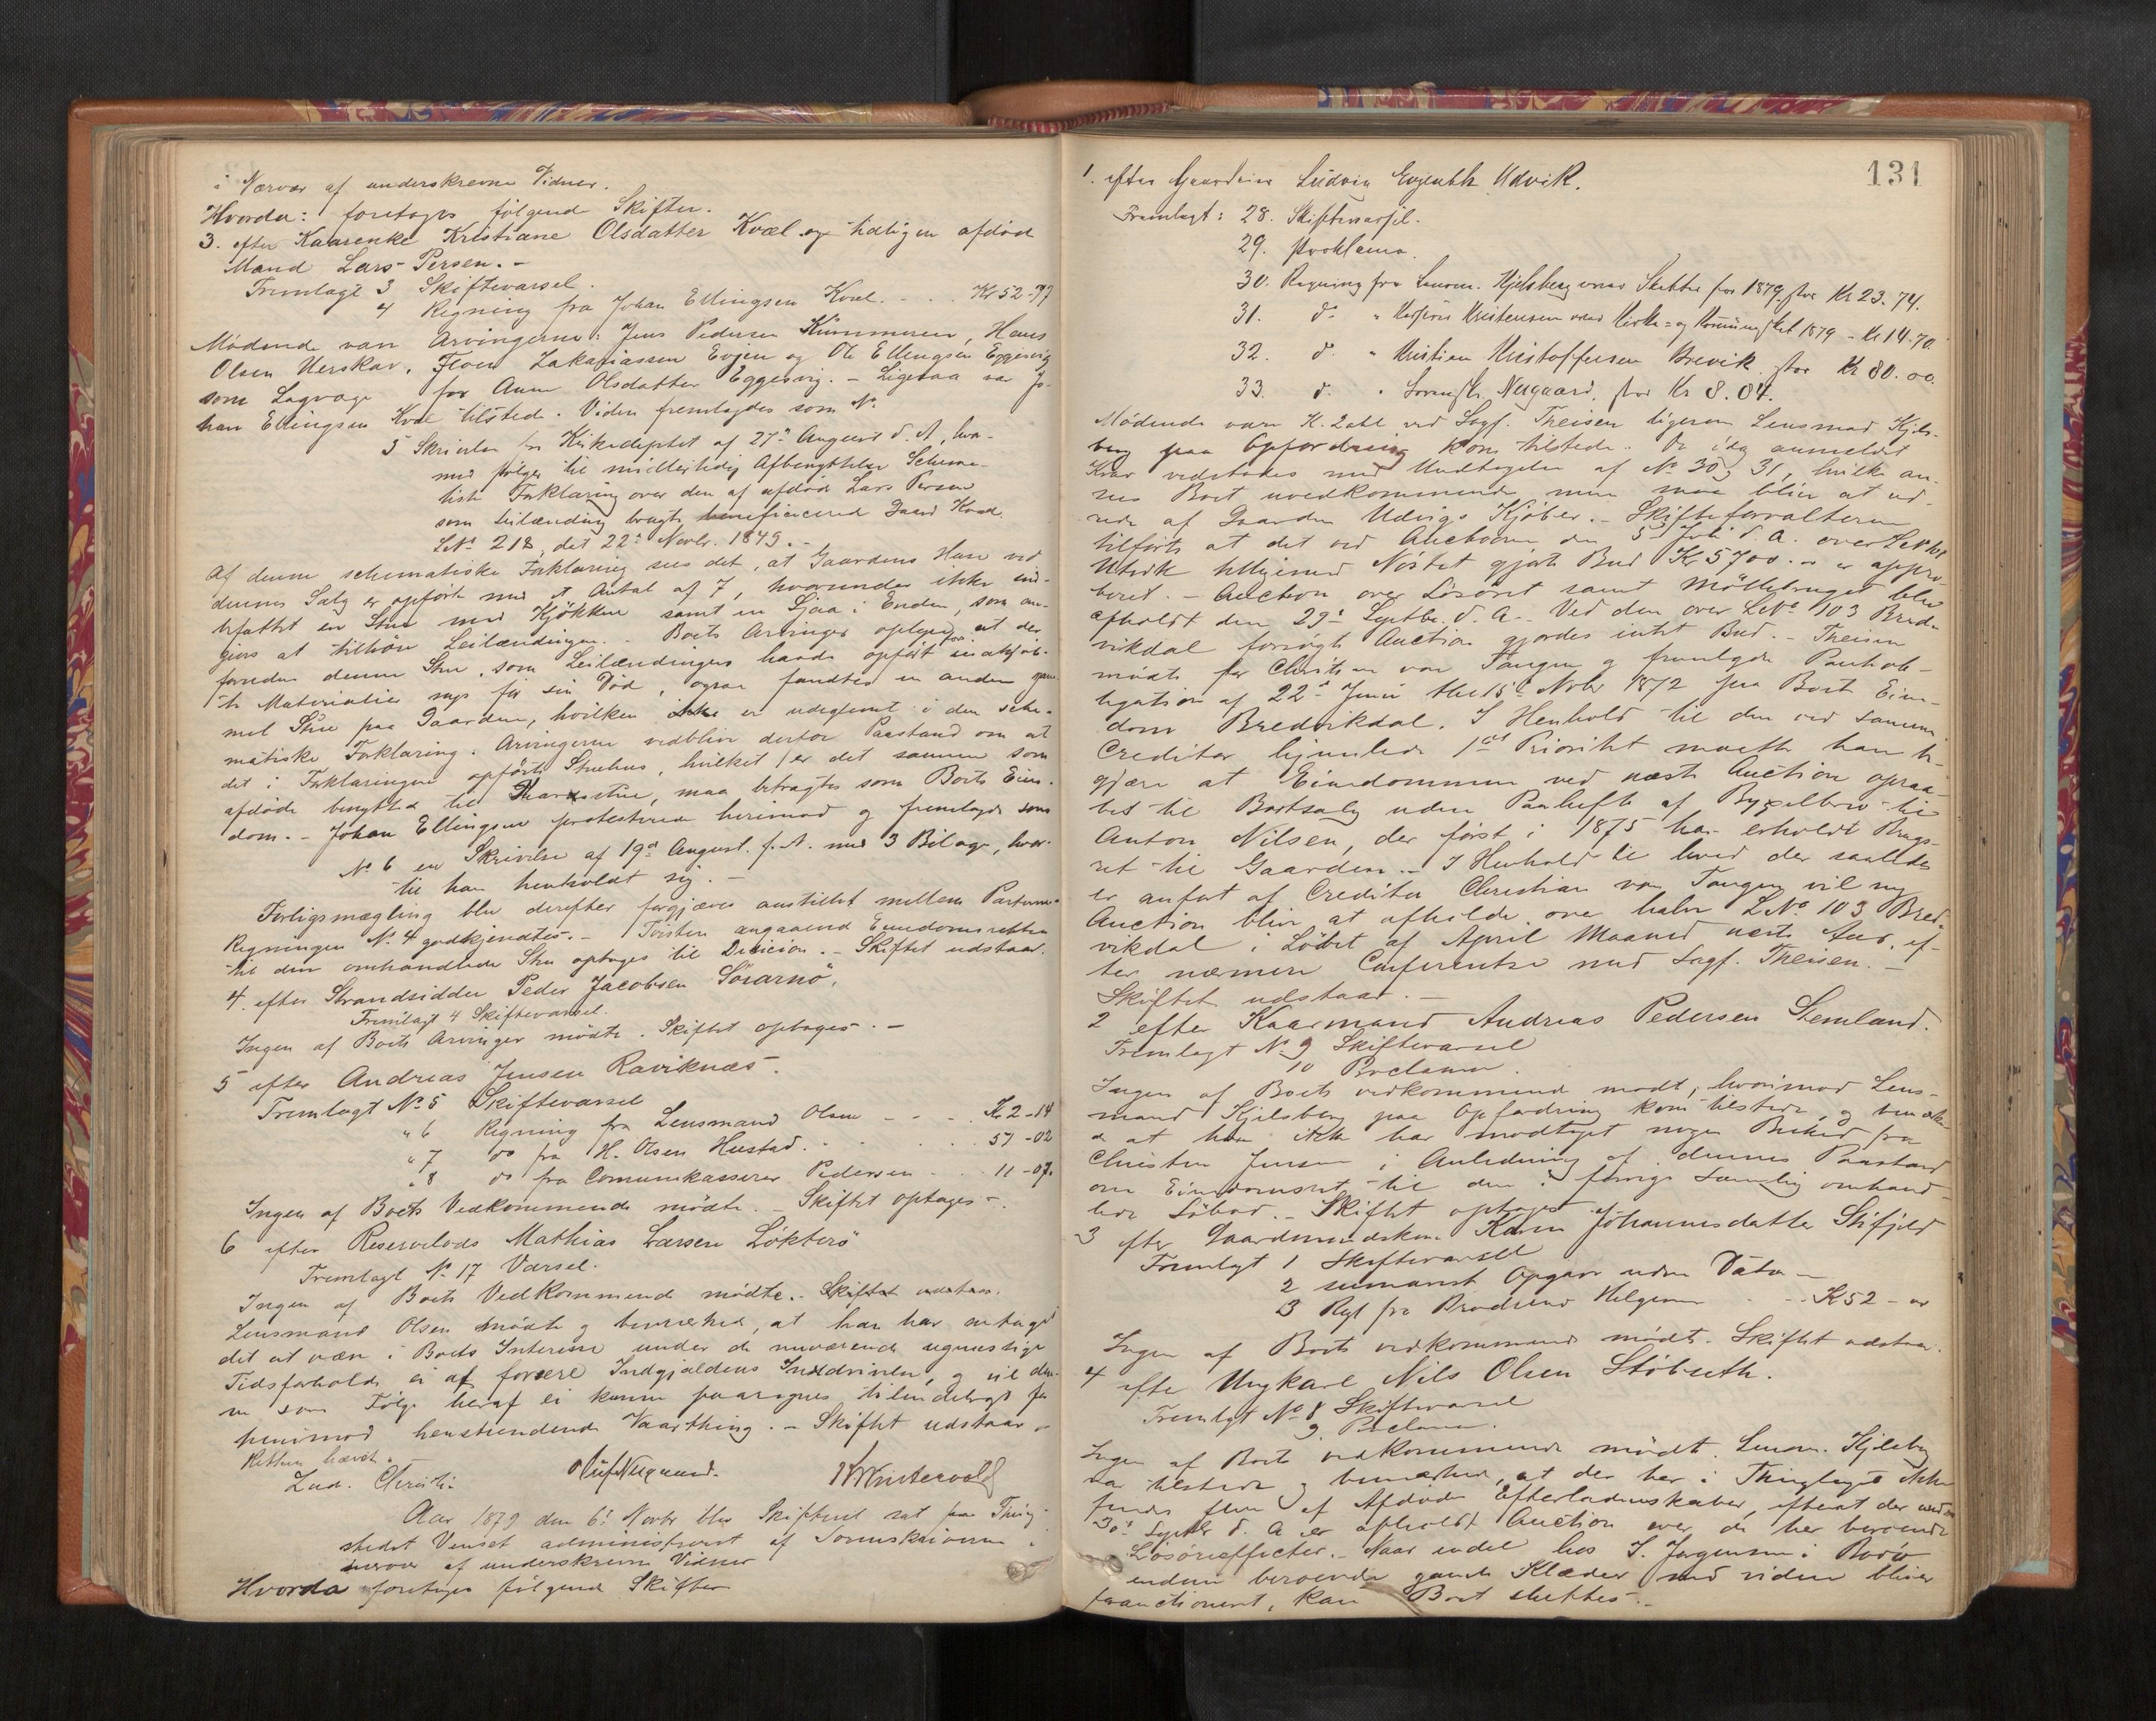 i Nærvær af underskrevne Vidner.
Hvorda: foretoges følgende Skifter.
3. efter Kaarenke Kristiane Olsdatter Kvæl og tidligere afdøde
Mand Lars Persen. -
Fremlagt 3 Skiftevarsel.
4 Regning fra Johan Ellingsen Kvæl. - . . Kr 52-97
Mødende vare Arvingerne: Jens Pedersen Kummeren, Hans
Olsen Uerskar, Floer Zakariassen Evjen og Ole Ellingsen Eggesvig
som Lagværge for Anne Olsdatter Eggesvig. - Ligesaa var Jo-
han Ellingsen Kvæl tilstede. Videre fremlagdes som No
5 Skrivelse fra Kirkedeptet af 27de August d. A, hvor-
med følger til midlertidig Afbenyttelse Schema-
tisk Forklaring over den af afdøde Lars Persen
som Leilænding brugte beneficerede Gaard Kvæl
LNo 218, dat 22de Novbr. 1849. -
Af denne schematiske Forklaring sees det, at Gaardens Huse ved
dennes Salg er opført med et Antal af 7, hvorunder ikke ind-
befattet en Stue med Kjøkken samt en Sjaa i Enden, som an-
gives at tilhøre Leilændingen. - Boets Arvinger oplyser, at der
foruden denne Stue, som Leilændingen havde opført for indkjøb-
te Materialier nogt før sin Død, ogsaa fandtes en anden gam-
mel Stue paa Gaarden, hvilken ikke er udeglemt i den sche-
matiske Forklaring. Arvingerne vedbliver derfor Paastand om at
det i Forklaringen opførte Stuehus, hvilket er det samme som
afdøde benyttet til, maa betragtes som Boets Eien-
dom. - Johan Ellingsen protesterede herimod og fremlagde som
No 6 en Skrivelse af 19de August f. A. med 3 Bilage, hvor-
til han henholdt sig. -
Forligsmægling blev derefter forgjæves anstillet mellem Parterne.
Regningen No 4 godkjendtes. - Tvisten angaaende Eiendomsretten
til den omhandlede Stue optages til Decision. - Skiftet udstaar.
4. efter Strandsidder Peder Jacobsen Sørarnø.
Fremlagt 4 Skiftevarsel.
Ingen af Boets Arvinger mødte. Skiftet optages. -
5 efter Andreas Jensen Raviknæs.
Fremlagt No 5 Skiftevarsel
" 6 Regning fra Lensmand Olsen - - - Kr 2-14
" 7 do fra H. Olsen Hustad. . . . . 57-02
" 8 do fra Comunekasserer Pedersen . . . 11-07.
Ingen af Boets Vedkommende mødte. - Skiftet optages -
6 efter Reservelods Mathias Larsen Løkterø
Fremlagt No 17 Varsel.
Ingen af Boets Vedkommende mødte. - Skiftet udstaar.
Lensmand Olsen mødte og bemærkede, at han har antaget
det at være i Boets Interesse under de nuværende ugunstige
Tidsforholde ei at forcere Indgjældens Inddrivelse, og vil den-
ne som Følge heraf ei kunne paaregnes tilendebragt før
henimod henstundende Vaarthing. - Skiftet udstaar -
Retten hævet. -
Lud. Christi. Oluf Nygaard. Winterwold
Aar 1879 den 6te Novbr blev Skifteret sat paa Thing-
stedet Venset administreret af Sorenskriveren i
Nærvær af underskrevne Vidner
Hvorda foretoges følgende Skifter
131
1. efter Gaardeier Ludvig Evjenth Udvik.
Fremlagt: 28. Skiftevarsel.
29. Proklama.
30. Regning fra Lensm. Kjelsberg over Skatter for 1879. stor Kr 23.74.
31. do " Kristensen over Kirke- og Kommuneskat 1879 - Kr 14.70.
32. do " Kristian Kristoffersen Brevik. stor Kr 80.00.
33. do " Nygaard. stor Kr 8.04.
Mødende vare K. Zahl ved Sagf. Theisen ligesom Lensmand Kjels-
berg paa Opfordring kom tilstede. De idag anmeldte
Krav vedtoges med Undtagelse af No 30 og 31, hvilke an-
sees Boet uvedkommende men maa blive at ud-
rede af Gaarden Udvigs Kjøber. - Skifteforvalteren
tilførte at det ved Auctionen den 5te Juli d. A. over LNo
Utvik tilligemed Nøstet gjorte Bud Kr 5700.00 er appro-
beret. - Auction over Løsøret samt Møllebruget blev
afholdt den 29de Septbr. d. A. - Ved den over LNo 103 Bred-
vikdal forsøgte Auction gjordes intet Bud. - Theisen
mødte for Christian von Tangen og fremlagde Panteob-
ligation af 22de Juni thl 15de Novbr 1872 paa Boets Eien-
dom Bredvikdal. I Henhold til den ved samme
Creditor hjemlede 1ste Prioritet maatte han be-
gjære at Eiendommen ved næste Auction opraa-
bes til Bortsalg uden Paahefte af Bygselbrev til
Anton Nilsen, der først i 1875 har erholdt Brugs-
ret til Gaarden. - I Henhold til hvad der saaledes
er anført af Creditor Christian von Tangen vil ny
Auction blive at afholde over halve LNo 103 Bred-
vikdal i Løbet af April Maaned næste Aar, ef-
ter nærmere Conferentse med Sagf. Theisen. -
Skiftet udstaar. -
2 efter Kaarmand Andreas Pedersen Stemland.
Fremlagt No 9 Skiftevarsel
10 Proclama.
Ingen af Boets vedkommende mødte, hvorimod Lens-
mand Kjelsberg paa Opfordring kom tilstede, og bemærke-
de at han ikke har modtaget nogen Besked fra
Christen Jensen i Anledning af dennes Paastand
om Eiendomsret til den i forrige Samling omhand-
lede Søbod. - Skiftet optages.
3 efter Gaardmandskone Karen Johannesdatter Stifjeld
Fremlagt 1 Skiftevarsel
2 sumarisk Opgave uden Data -
3 Rgl fra Brødrene Helgesen . . . Kr 52-00
Ingen af Boets vedkommende mødte. Skiftet udstaar.
4 efter Ungkarl Nils Olsen Støbseth.
Fremlagt No 8 Skiftevarsel
9 Proclama.
Ingen af Boets vedkommende mødte. Lensm. Kjelsberg
var tilstede og bemærkede, at der her i Thinglaget ikke
findes flere af Afdødes Efterladenskaber, efterat der under
30te Septbr d. A. er afholdt Auction over de her beroende
Løsøreeffecter. - Naar endel hos J. Jørgensen i Bodø
endnu beroende gamle Klæder med videre bliver
auctioneret, kan Boet sluttes. -